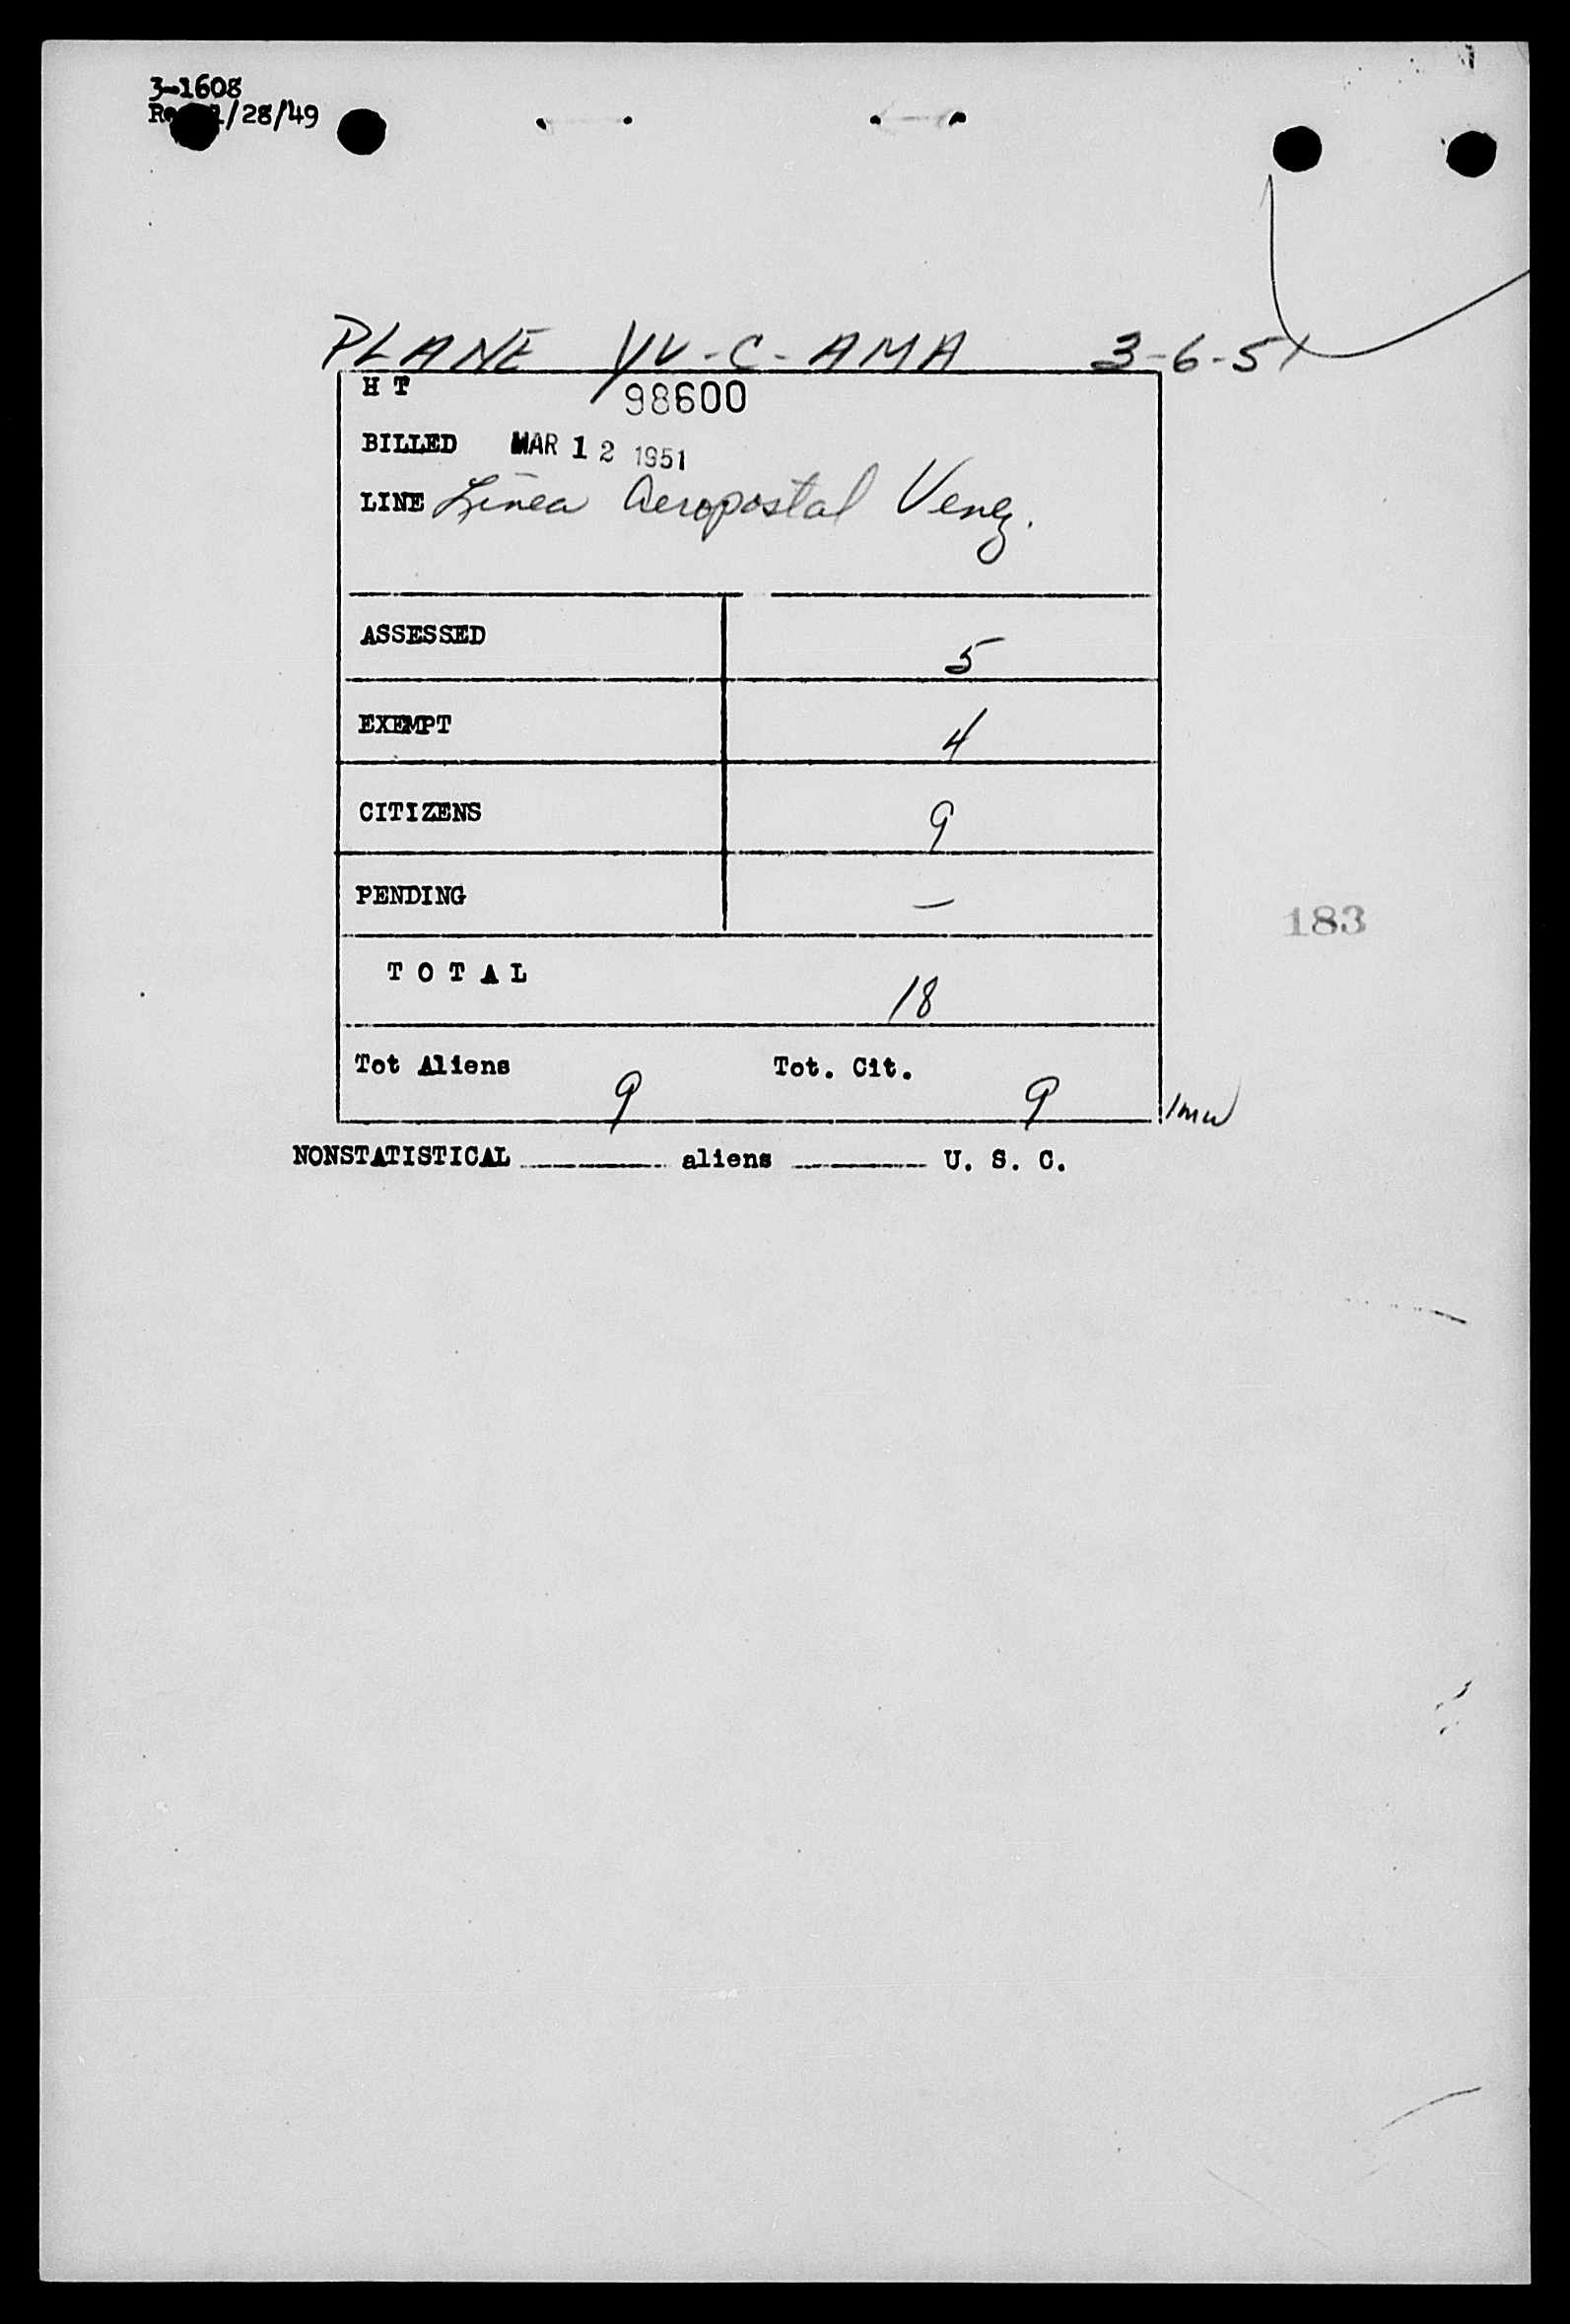 3-1608
1/28/49
PLANE YV-C-AMA 3-6-51
H T 98600
BILLED MAR 12 1951
LINE Linea Aeropostal Venez.
ASSESSED 5
EXEMPT 4
CITIZENS 9
PENDING —
183
T O T A L 18
Tot Aliens 9 Tot. Cit. 9
NONSTATISTICAL ________ aliens ________ U. S. C.